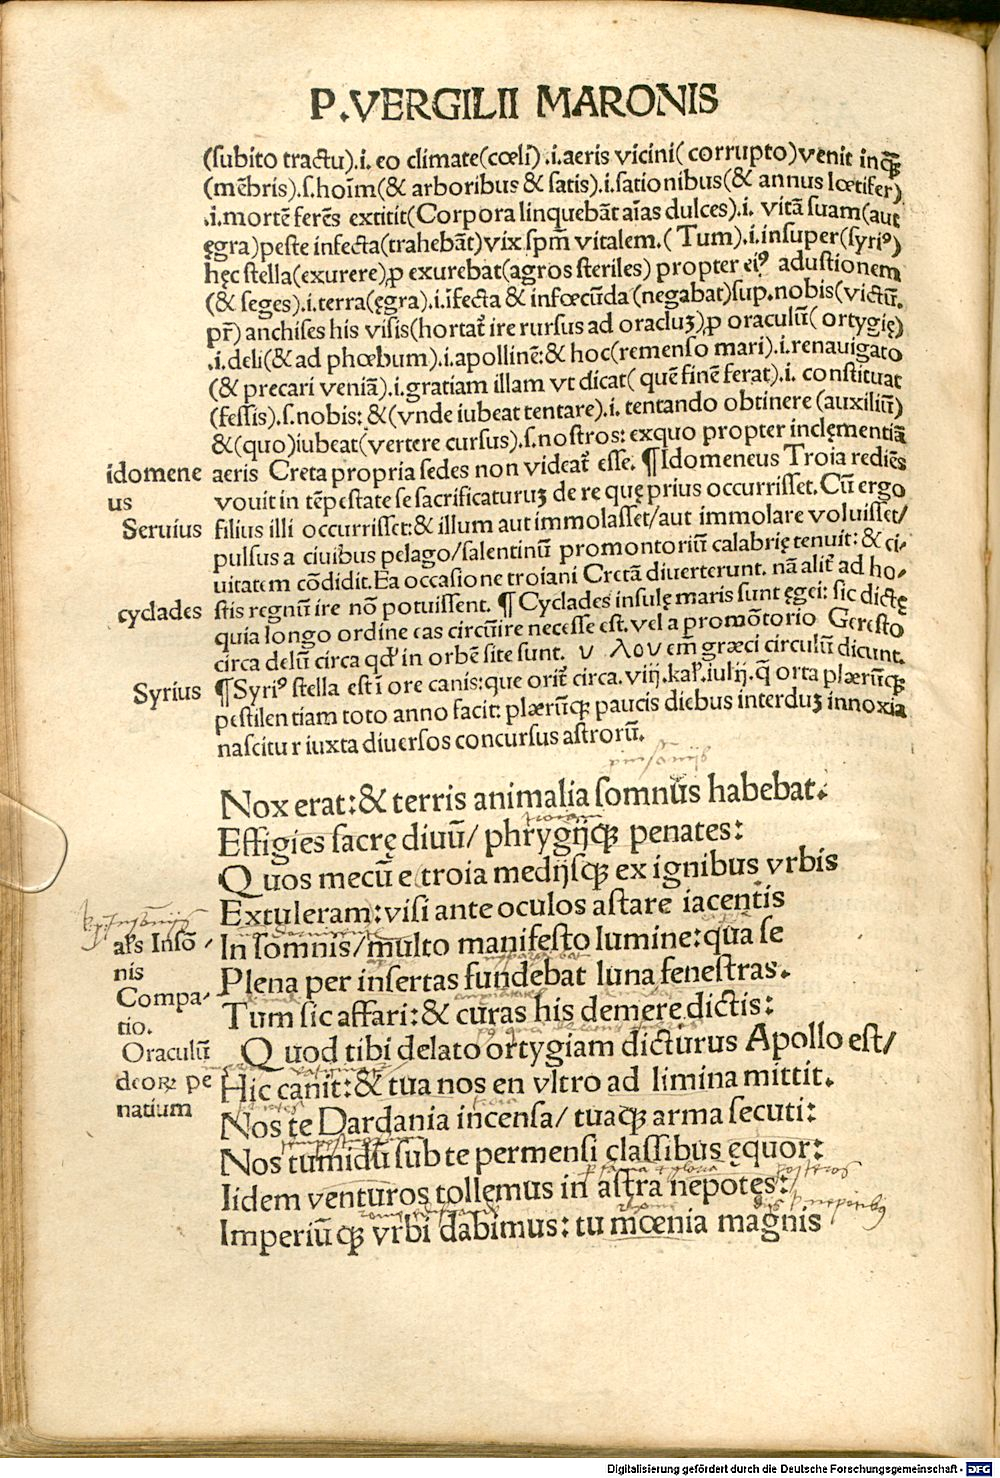 P.VERGILII MARONIS
(subito tractu).i. eo climate(cœli).i.aeris vicini(corrupto)venit inqꝫ̄
(mēbris).ſ.hoīm(& arboribus & ſatis).i.ſationibus(& annus lœtifer)
.i.mortē ferēs extitit(Corpora linquebāt aīas dulces).i. vitā ſuam(aut
ęgra)peſte infecta(trahebāt)vix ſpm̄ vitalem.(Tum).i.inſuper(ſyriꝰ)
hęc ſtella(exurere)ꝓ exurebat(agros ſteriles) propter eiꝰ aduſtionem
(& ſeges).i.terra(ęgra).i.īfecta & infœcūda(negabat)ſup.nobis(victū.
pr̄) anchiſes his viſis(hortat᷑ ire rurſus ad oracluꝫ)ꝓ oraculū( ortygię)
.i.deli(& ad phœbum).i.apollinē:& hoc(remenſo mari).i.renauigato
(& precari veniā).i.gratiam illam vt dicat( quē finē ferat).i. conſtituat
(feſſis).ſ.nobis: &(vnde iubeat tentare).i. tentando obtinere (auxiliū)
&(quo)iubeat(vertere curſus).ſ.noſtros: exquo propter inclęmentiā
idomeneus
aeris Creta propria ſedes non videat᷑ eſſe. ¶Idomeneus Troia rediēs
vouit in tēpeſtate ſe ſacrificaturuꝫ de re quę prius occurriſſet.Cū ergo
Seruius
filius illi occurriſſet:& illum aut immolaſſet/aut immolare voluiſſet/
pulſus a ciuibus pelago/ſalentinū promontoriū calabrię tenuit: & ci⸗
uitatem cōdidit.Ea occaſione troiani Cretā diuerterunt. nā alit᷑ ad ho⸗
cyclades
ſtis regnū ire nō potuiſſent. ¶Cyclades inſulę maris ſunt ęgei: ſic dictę
quia longo ordine eas circūire neceſſe eſt.vel a promōtorio Gereſto
circa delū circa qd᷑ in orbē ſite ſunt. υ λου em̄ græci circulū dicunt.
Syrius
¶Syriꝰ ſtella eſt ī ore canis:que orit᷑ circa.viij.kal᷑.iulij.q̄ orta plærūqꝫ
peſtilentiam toto anno facit: plærūqꝫ paucis diebus interduꝫ innoxia
naſcitur iuxta diuerſos concurſus aſtrorū.
Nox erat:& terris animalia ſomnus habebat.
Effigies ſacrę diuū/ phrygijqꝫ penates:
Quos mecū e troia medijſqꝫ ex ignibus vrbis
Extuleram:viſi ante oculos aſtare iacentis
al's Inſō⸗
nis
In ſomnis/multo manifeſto lumine:qua ſe
Plena per inſertas fundebat luna feneſtras.
Compa⸗
tio.
Tum ſic affari:& curas his demere dictis:
Oraculū
deoꝝ pe
natium
Quod tibi delato ortygiam dicturus Apollo eſt/
Hic canit:& tua nos en vltro ad limina mittit.
Nos te Dardania incenſa/ tuaqꝫ arma ſecuti:
Nos tumidū ſub te permenſi claſſibus ęquor:
Iidem venturos tollemus in aſtra nepotes:
Imperiūqꝫ vrbi dabimus: tu mœnia magnis
Digitalisierung gefördert durch die Deutsche Forschungsgemeinschaft - DFG